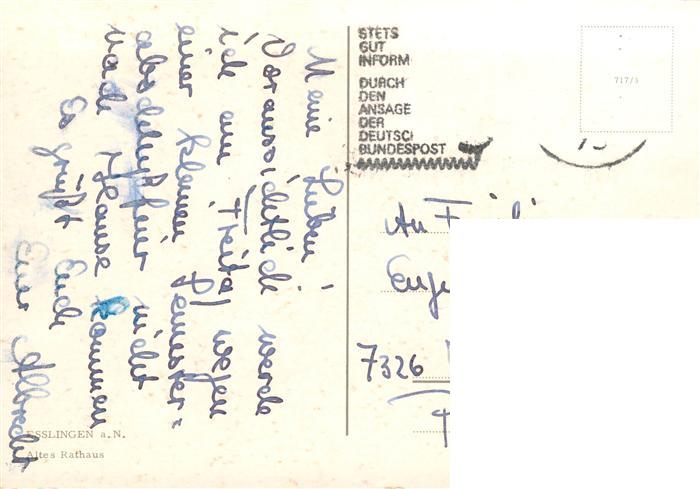 Meine Lieben!
Voraussichtlich werde
ich am Freitag wegen
einer kleinen Semester=
abschlußfeier nicht
nach Hause kommen
Es grüßt Euch
Euer Albrecht
ESSLINGEN a. N.
Altes Rathaus
STETS
GUT
INFORM
DURCH
DEN
ANSAGE
DER
DEUTSCH
BUNDESPOST
717/3
An
7326